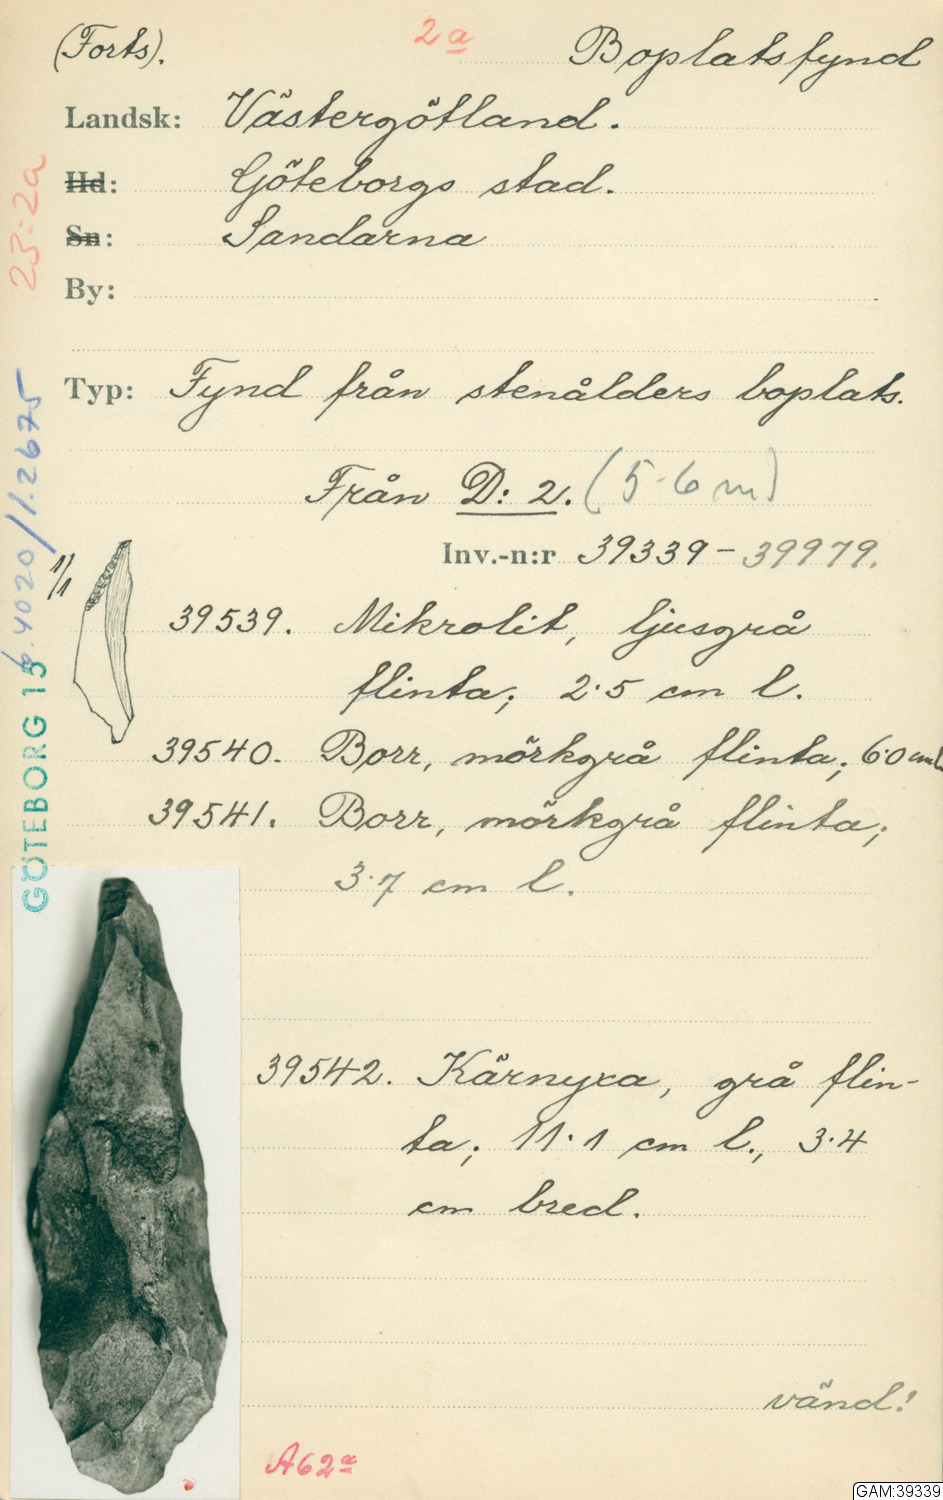 (Forts). 2a Boplatsfynd
Landsk: Västergötland.
Hd: Göteborgs stad.
Sn: Sandarna
By:
Typ: Fynd från stenålders boplats.
Från D: 2. (5-6 m)
Inv.-n:r 39339-39979.
1/1
39539. Mikrolit, ljusgrå
flinta; 2.5 cm l.
39540. Borr, mörkgrå flinta; 6.0 cm l.
39541. Borr, mörkgrå flinta;
3.7 cm l.
39542. Kärnyxa, grå flin-
ta; 11.1 cm l., 3.4
cm bred.
vänd!
A62a
23:2a
6.4020/1.2675
GÖTEBORG 15
GAM:39339